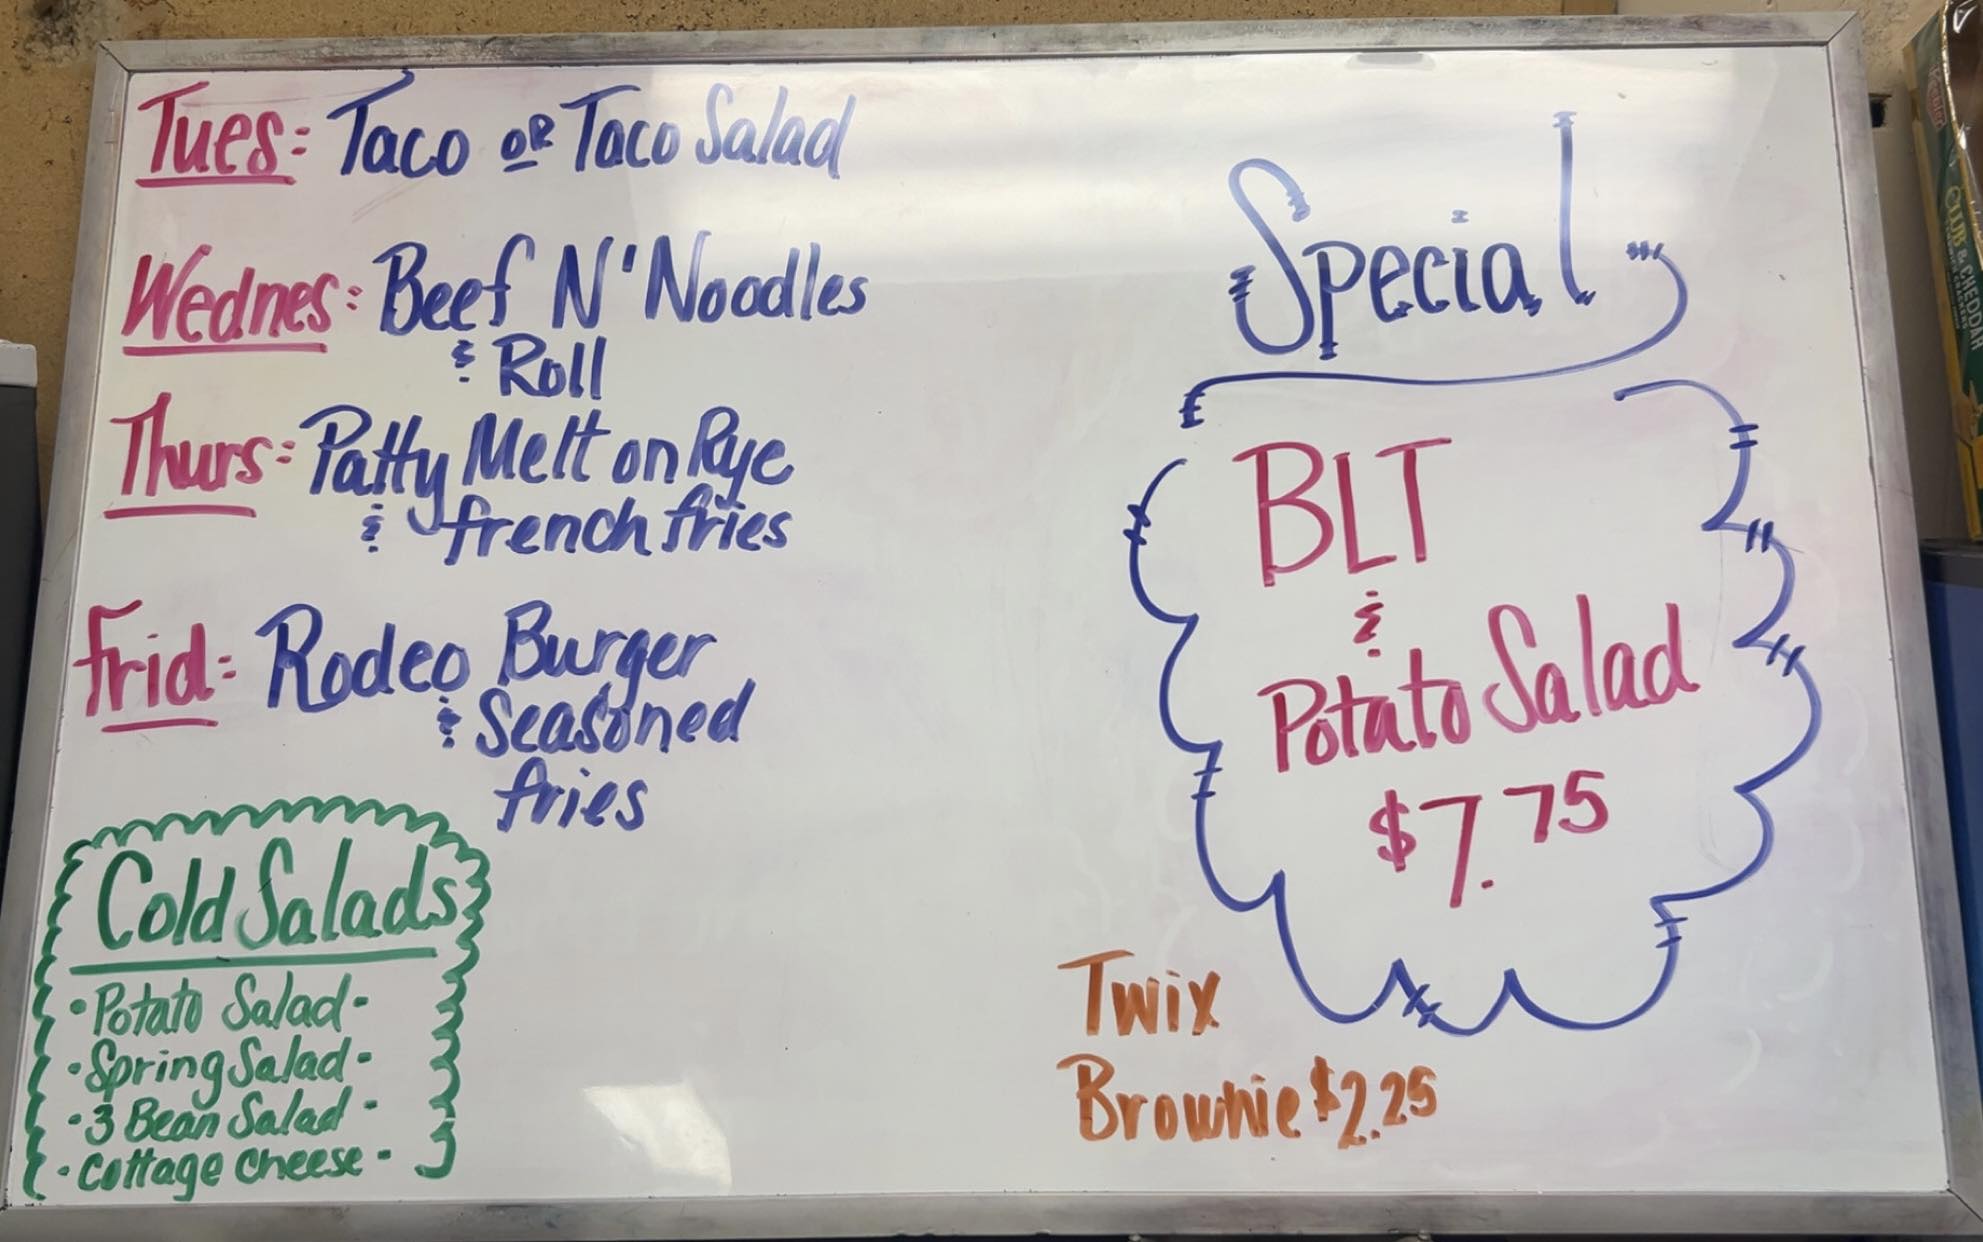 Tues: Taco OR Taco Salad
Wednes: Beef N' Noodles
& Roll
Thurs: Patty Melt on Rye
& french fries
Frid: Rodeo Burger
& Seasoned
fries
Cold Salads
• Potato Salad -
• Spring Salad -
• 3 Bean Salad -
• Cottage Cheese -
Special
BLT
&
Potato Salad
$7.75
Twix
Brownie $2.25
CLUB & CHEDDAR